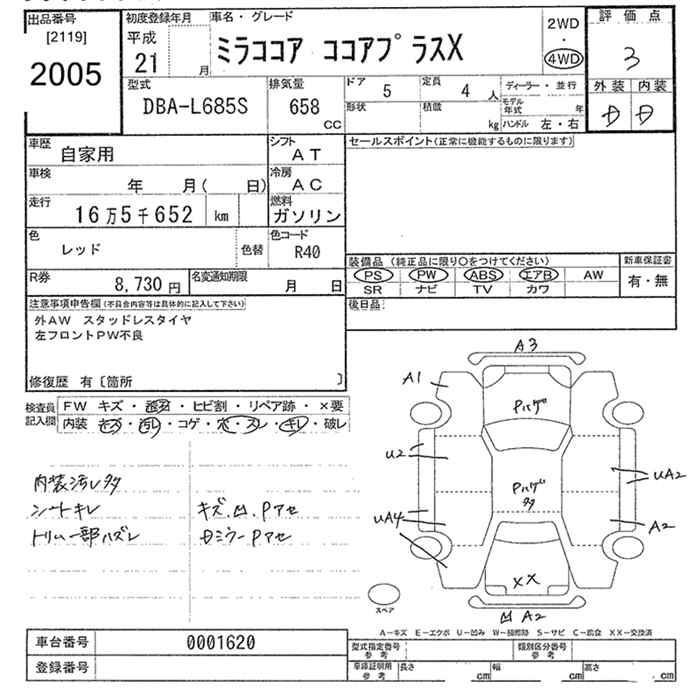 出品番号 初度登録年月 車名・グレード 2WD 評価点
[2119] 平成 ・ 3
2005 21 月 ミラココア ココアプラスX 4WD
型式 排気量 ドア 5 定員 4 人 ディーラー・並行 外装 内装
DBA-L685S 658 CC 形状 積載 kg モデル年式 年 D D
ハンドル 左・右
車歴 自家用 シフト AT セールスポイント(正常に機能するものに限ります)
車検 年 月( 日) 冷房 AC
走行 16万5千652 km 燃料 ガソリン
色 レッド 色替 色コード R40
装備品 (純正品に限り○をつけてください) 新車保証書
PS PW ABS エアB AW 有・無
SR ナビ TV カワ
R券 8,730円 名変通知期限 月 日
後日品:
注意事項申告欄(不具合内容等は具体的に記入して下さい)
外AW スタッドレスタイヤ
左フロントPW不良
修復歴 有〔箇所 〕
検査員 FW キズ・ ・ヒビ割・リペア跡・×要
記入欄 内装 キズ・汚レ・コゲ・穴・スレ・キレ・破レ
内装汚レ多
シートキレ キズ、凹、Pアセ
トリム一部ハズレ Dミラーpアセ
A3
A1
Pハゲ
U2
UA2
Pハゲ
多
UA4
A2
XX
凹 A2
スペア
A-キズ E-エクボ U-凹み W-補修跡 S-サビ C-腐食 XX-交換済
車台番号 0001620
登録番号
型式指定番号 参考 類別区分番号 参考
車庫証明用 参考 長さ cm 幅 cm 高さ cm